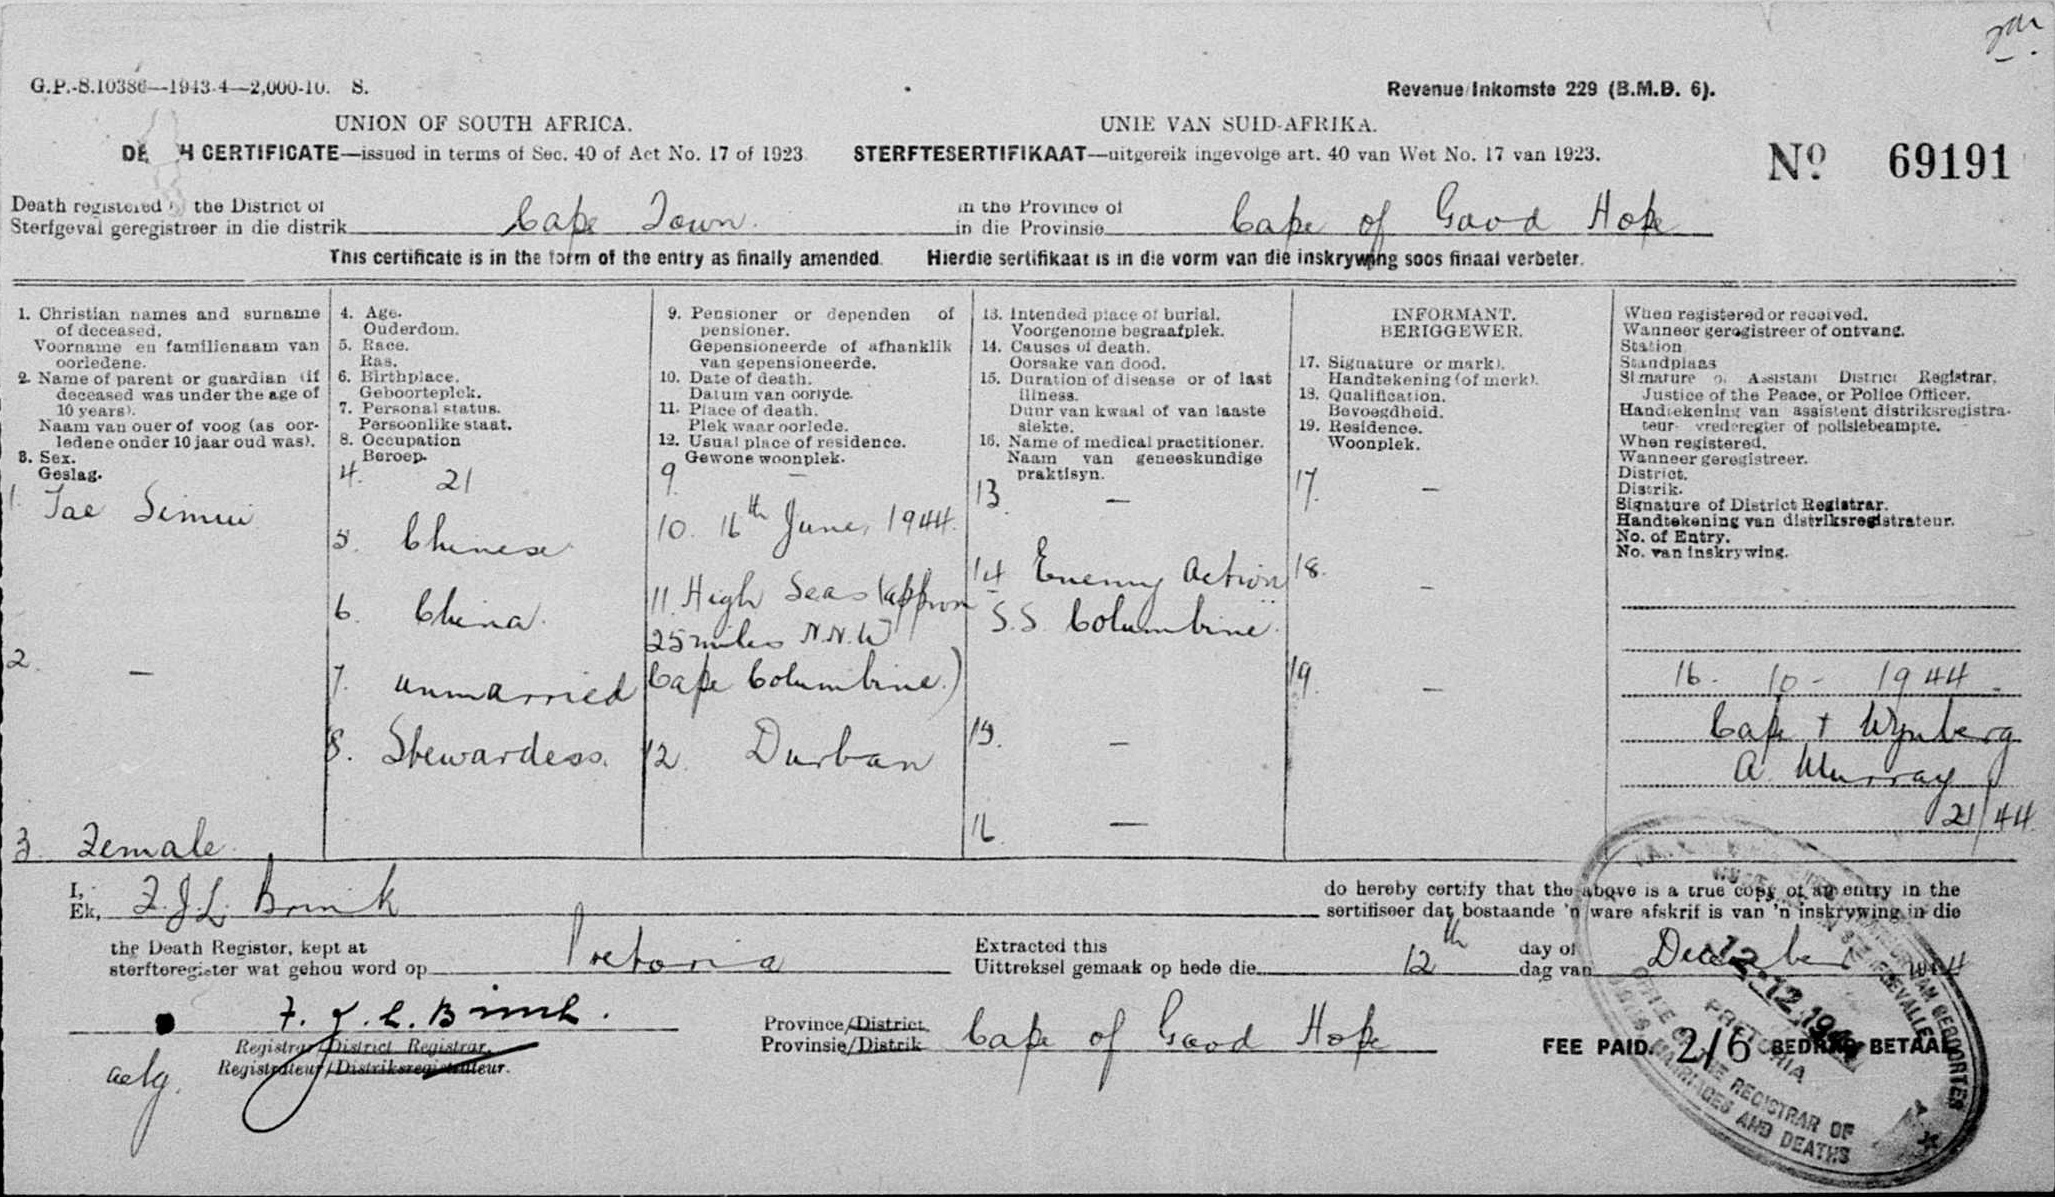 G.P.-S.10386—1943-4—2,000-10. S.
Revenue/Inkomste 229 (B.M.D. 6).
UNION OF SOUTH AFRICA.
UNIE VAN SUID-AFRIKA.
DE H CERTIFICATE—issued in terms of Sec. 40 of Act No. 17 of 1923.
STERFTESERTIFIKAAT—uitgereik ingevolge art. 40 van Wet No. 17 van 1923.
No. 69191
Death registered the District of
Sterfgeval geregistreer in die distrik Cape Town.
in the Province of
in die Provinsie Cape of Good Hope
This certificate is in the form of the entry as finally amended. Hierdie sertifikaat is in die vorm van die inskrywing soos finaal verbeter.
1. Christian names and surname
of deceased.
Voorname en familienaam van
oorledene.
2. Name of parent or guardian (if
deceased was under the age of
10 years).
Naam van ouer of voog (as oor-
ledene onder 10 jaar oud was).
3. Sex.
Geslag.
1. Tae Simui
2. —
3. Female.
4. Age.
Ouderdom.
5. Race.
Ras.
6. Birthplace.
Geboorteplek.
7. Personal status.
Persoonlike staat.
8. Occupation
Beroep.
4. 21
5. Chinese
6. China.
7. unmarried
8. Stewardess.
9. Pensioner or dependen of
pensioner.
Gepensioneerde of afhanklik
van gepensioneerde.
10. Date of death.
Datum van oorlyde.
11. Place of death.
Plek waar oorlede.
12. Usual place of residence.
Gewone woonplek.
9. —
10. 16th June, 1944.
11. High Seas (approx
25 miles N.N.W
Cape Columbine.)
12. Durban
13. Intended place of burial.
Voorgenome begraafplek.
14. Causes of death.
Oorsake van dood.
15. Duration of disease or of last
illness.
Duur van kwaal of van laaste
siekte.
16. Name of medical practitioner.
Naam van geneeskundige
praktisyn.
13. —
14 Enemy Action
S.S. Columbine.
15. —
16. —
INFORMANT.
BERIGGEWER.
17. Signature or mark).
Handtekening (of merk).
18. Qualification.
Bevoegdheid.
19. Residence.
Woonplek.
17. —
18. —
19. —
When registered or received.
Wanneer geregistreer of ontvang.
Station
Standplaas
Signature of Assistant District Registrar,
Justice of the Peace, or Police Officer.
Handtekening van assistent distriksregistra-
teur vrederegter of polisiebeampte.
When registered.
Wanneer geregistreer.
District.
Distrik.
Signature of District Registrar.
Handtekening van distriksregistrateur.
No. of Entry.
No. van inskrywing.
16. 10 - 1944.
Cape + Wynberg
A. Murray
21/44
I,
Ek, F.J.L. Brink
do hereby certify that the above is a true copy of an entry in the
sertifiseer dat bostaande 'n ware afskrif is van 'n inskrywing in die
the Death Register, kept at
sterfteregister wat gehou word op Pretoria
Extracted this
Uittreksel gemaak op hede die 12th
day of
dag van December 1944
F. J. L. Brink.
Registrar/District Registrar.
Registrateur/Distriksregistrateur.
Province/District
Provinsie/Distrik Cape of Good Hope
FEE PAID. 2/6 BEDRAG BETAAL
12.12.1944
PRETORIA
OFFICE OF THE REGISTRAR OF
BIRTHS MARRIAGES AND DEATHS